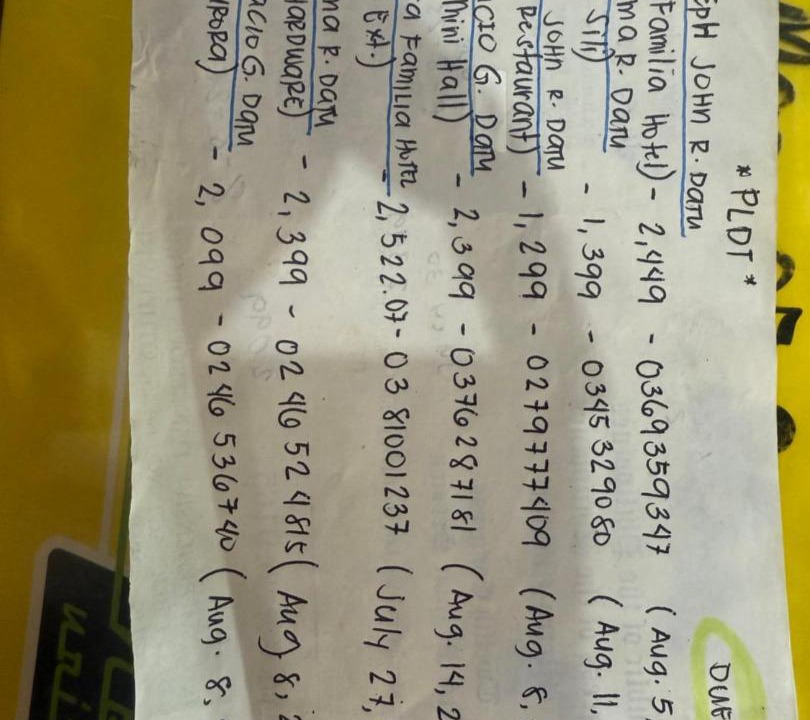 *PLDT*
DUE
EPH JOHN R. DATU
Familia Hotel) - 2,449 - 0369359347 (Aug. 5
ma R. Datu
Sili) - 1,399 - 0345329080 (Aug. 11,
JOHN R. DATU
Restaurant) - 1,299 - 0279777409 (Aug. 8,
ACIO G. DATU
Mini Hall) - 2,399 - 0376287181 (Aug. 14, 2
a Familia Hotel
Ext.) - 2,522.07 - 0381001237 (July 27,
na R. Datu
HARDWARE) - 2,399 - 0246524815 (Aug 8, 2
ACIO G. Datu
- 2,099 - 0246536740 (Aug. 8,